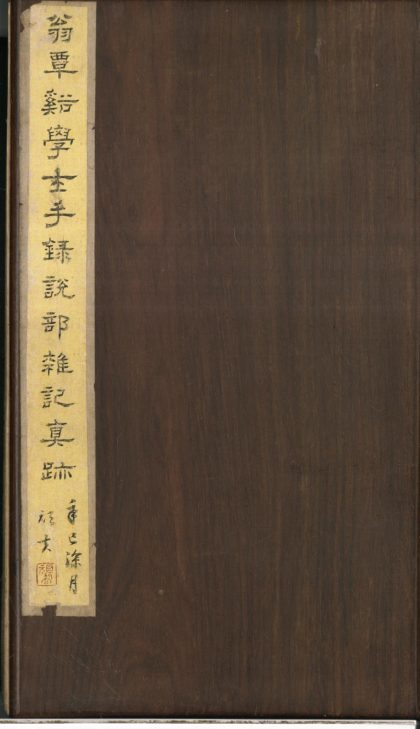 翁覃谿學士手錄說部雜記真跡
辛巳涂月